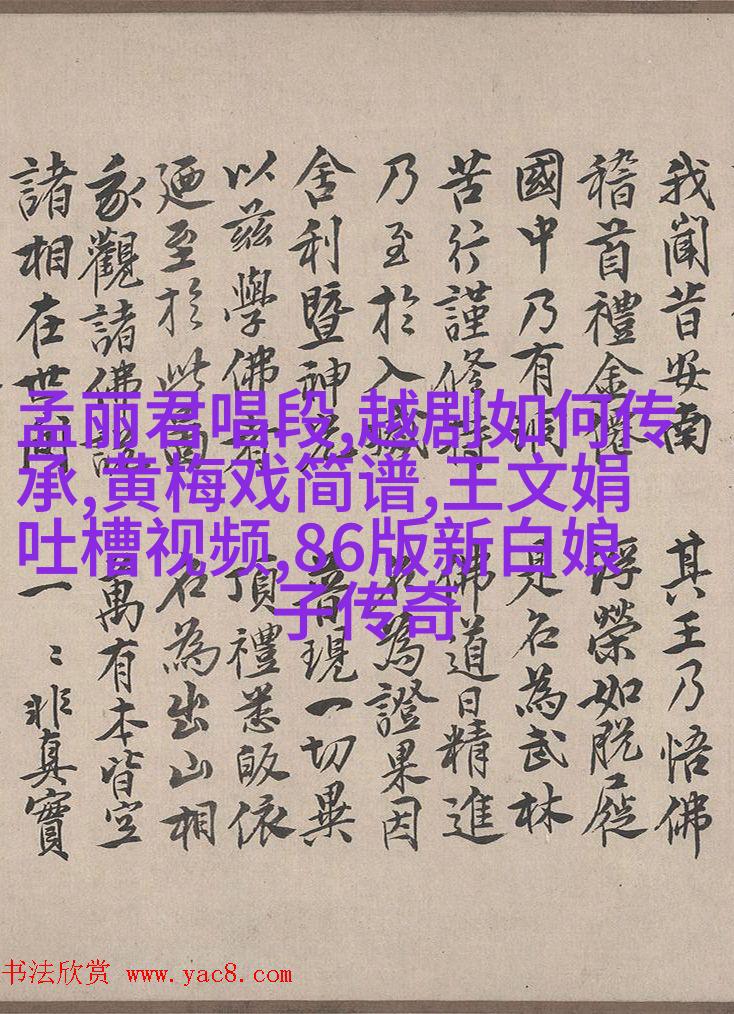 我聞昔安南 其王乃悟佛
稽首禮金僊 浮榮如脫屣
國中乃有 見名為武林
苦行謹修持 佛道日精進
乃至於入滅 為證果因
舍利暨神光 普現一切異
以茲學佛者 頂禮悉皈依
迺至於此圖 名為出山相
我觀諸佛 萬有本皆空
諸相在世間 一〻非真實
孟丽君唱段,越剧如何传
承,黄梅戏简谱,王文娟
吐槽视频,86版新白娘
子传奇
书法欣赏 www.yac8.com